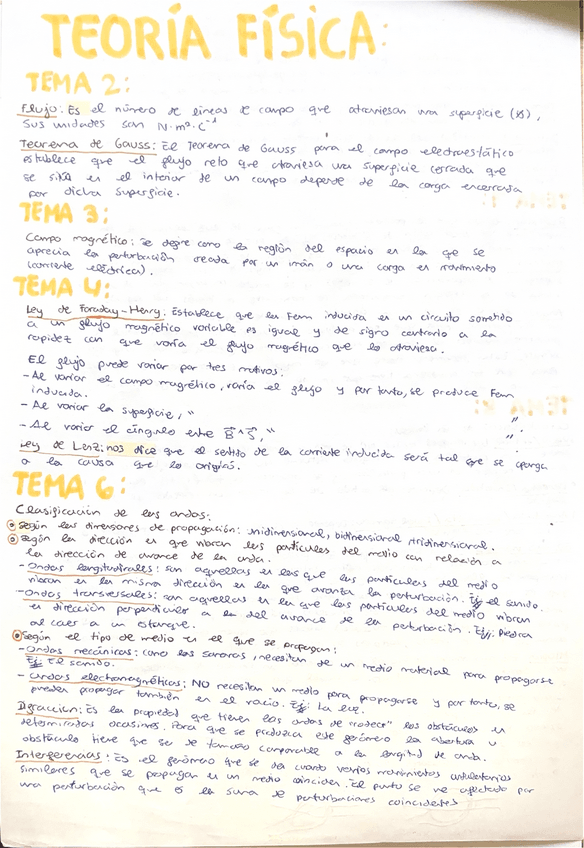 TEORÍA FÍSICA:
TEMA 2:
Flujo: Es el número de líneas de campo que atraviesan una superficie (Ø),
Sus unidades son N·m²·C⁻¹
Teorema de Gauss: El Teorema de Gauss para el campo electroestático
establece que el flujo neto que atraviesa una superficie cerrada que
se sitúa en el interior de un campo depende de la carga encerrada
por dicha superficie.
TEMA 3:
Campo magnético: se define como la región del espacio en la que se
aprecia la perturbación creada por un imán o una carga en movimiento
(corriente eléctrica).
TEMA 4:
Ley de Faraday-Henry: Establece que la Fem inducida en un circuito sometido
a un flujo magnético variable es igual y de signo contrario a la
rapidez con que varía el flujo magnético que lo atraviesa.
El flujo puede variar por tres motivos:
- Al variar el campo magnético, varía el flujo y por tanto, se produce Fem
inducida.
- Al variar la superficie, " "
- Al variar el ángulo entre B^S, " "
Ley de Lenz: nos dice que el sentido de la corriente inducida será tal que se oponga
a la causa que lo origina.
TEMA 6:
Clasificación de las ondas:
Según las dimensiones de propagación: unidimensional, bidimensional, tridimensional.
Según la dirección en que vibran las partículas del medio con relación a
la dirección de avance de la onda.
- Ondas longitudinales: son aquellas en las que las partículas del medio
vibran en la misma dirección en la que avanza la perturbación. Ej: el sonido.
- Ondas transversales: son aquellas en la que las partículas del medio vibran
en dirección perpendicular a la del avance de la perturbación. Ej: Piedra
al caer a un estanque.
Según el tipo de medio en el que se propagan:
- Ondas mecánicas: como las sonoras, necesitan de un medio material para propagarse
Ej: El sonido.
- Ondas electromagnéticas: NO necesitan un medio para propagarse y por tanto, se
pueden propagar también en el vacío. Ej: La luz.
Difracción: Es la propiedad que tienen las ondas de "rodear" los obstáculos en
determinadas ocasiones. Para que se produzca este fenómeno la abertura u
obstáculo tiene que ser de tamaño comparable a la longitud de onda.
Interferencias: Es el fenómeno que se da cuando varios movimientos ondulatorios
similares que se propagan en un medio coinciden. El punto se ve afectado por
una perturbación que es la suma de perturbaciones coincidentes